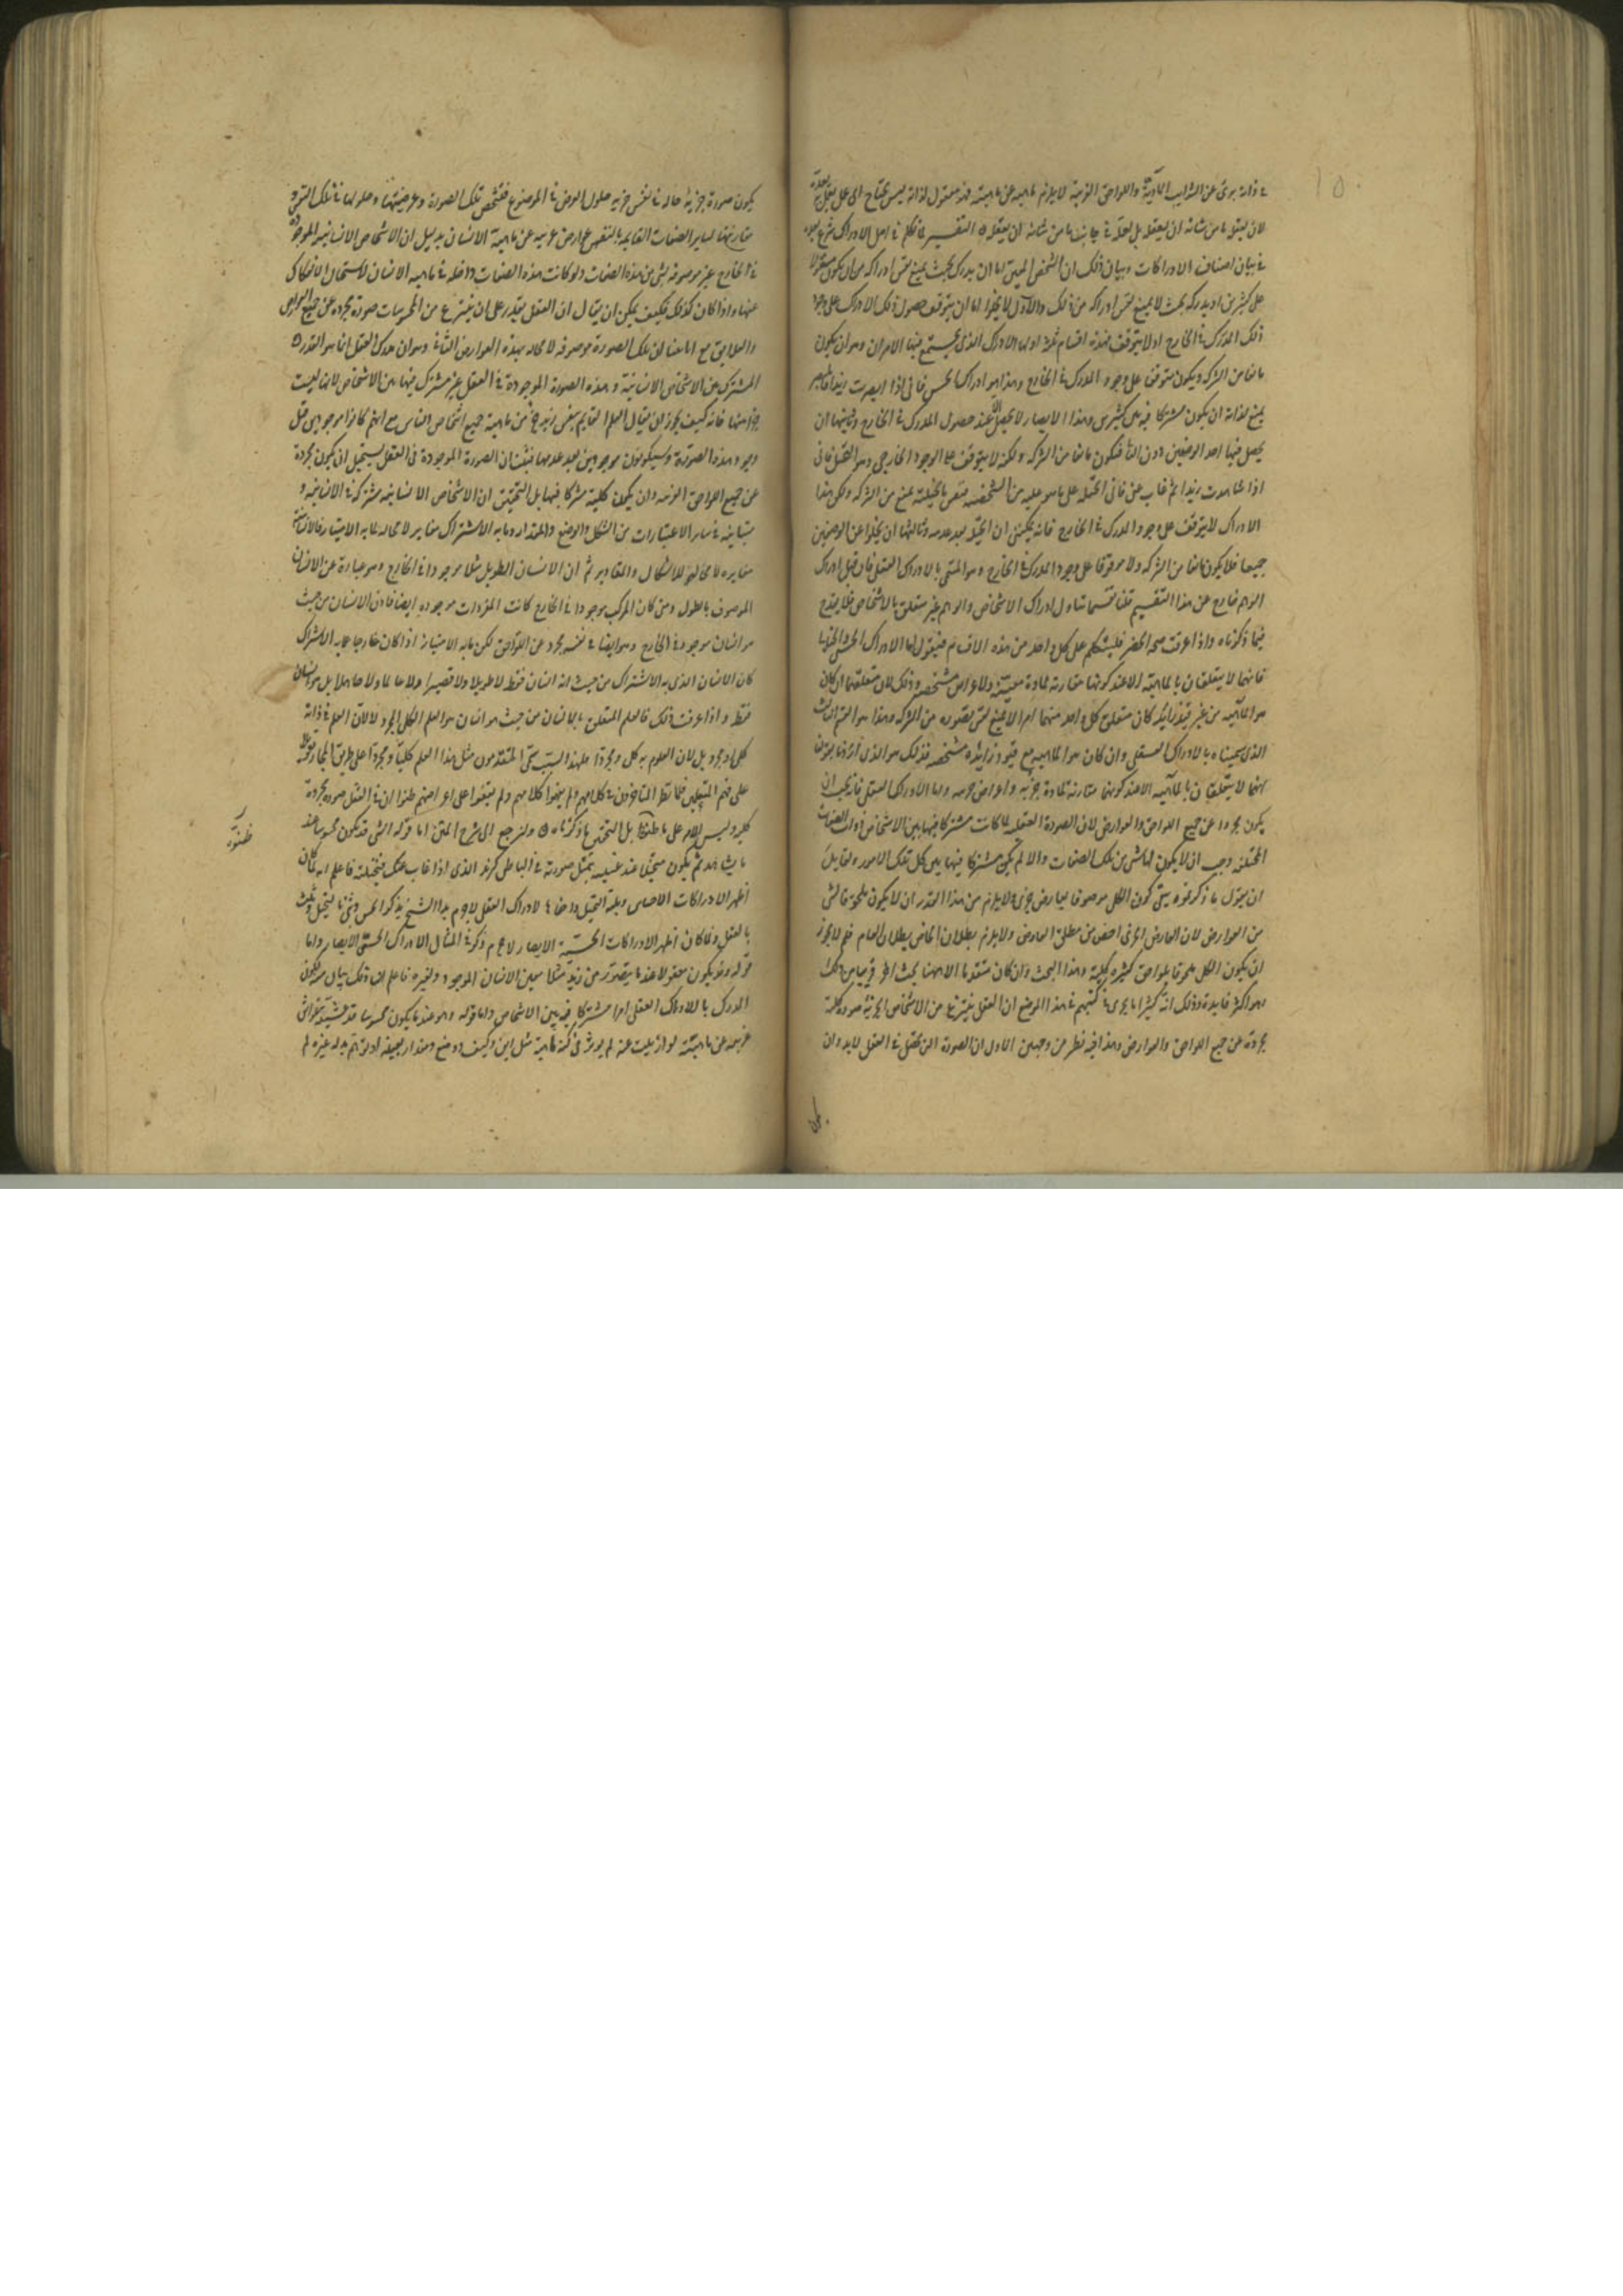 في ذاته برئ عن الشوايب المادية واللواحق الغريبة لا يلزم ماهيته عن ماهيته فهو معقول لذاته ليس يحتاج الى عمل يعمل به يعده
لان يعقله ما من شانه ان يعقله بل لعله في جانب ما من شانه ان يعقله ه التفسير لما تكلم في اصل الادراك شرع بعده
في بيان اصناف الادراكات وبيان ذلك ان الشخص المعين اما ان يدرك بحيث يمنع نفس ادراكه من ان يكون مقولا
على كثيرين او يدركه بحيث لا يمنع نفس ادراكه من ذلك والاول لا يخلوا اما ان يتوقف حصول ذلك الادراك على وجود
ذلك المدرك في الخارج او لا يتوقف فهذه اقسام ثلثة اولها الادراك الذي يجتمع فيها الامران وهو ان يكون
مانعا من الشركة ويكون متوقفا على وجود المدرك في الخارج وهذا هو ادراك الحس فاني اذا ابصرت زيدا فالمبصر
يمنع لذاته ان يكون مشتركا فيه بين كثيرين وهذا الابصار لا يحصل الا عند حصول المدرك في الخارج وثانيها ان
يحصل فيها احد الوصفين دون الثاني فيكون مانعا من الشركة ولكنه لا يتوقف على الوجود الخارجي وهو التخيل فاني
اذا شاهدت زيدا ثم غاب عني فاني اتخيله على ما هو عليه من الشخصية فنفس ما تخيلته يمنع من الشركة ولكن هذا
الادراك لا يتوقف على وجود المدرك في الخارج فانه يمكنني ان اتخيله بعد عدمه وثالثها ان يخلوا عن الوصفين
جميعا فلا يكون مانعا من الشركة ولا موقوفا على وجود المدرك في الخارج وهو المسمى بالادراك العقلي فان قيل ادراك
الوهم خارج عن هذا التقسيم قلنا تقسيمنا تناول ادراك الاشخاص والوهم غير متعلق بالاشخاص فلا يقدح
فيما ذكرناه واذا عرفت صحة الحصر فلنتكلم على كل واحد من هذه الاقسام فنقول اما الادراك الحسي والخيالي
فانهما لا يتعلقان بالماهية الا عند كونها مقارنة لمادة معينة ولاعراض مشخصة وذلك لان متعلقهما ان كان
هو الماهية من غير قيد زايد كان متعلق كل واحد منهما امرا لا يمنع نفس تصوره من الشركة وهذا هو القسم الثالث
الذي سميناه بالادراك العقلي وان كان هو الماهية مع قيود زايدة مشخصة فذلك هو الذي
انهما لا يتعلقان بالماهية الا عند كونها مقارنة لمادة جزئية واعراض جزئية واما الادراك العقلي فانه يجب ان
يكون مجردا عن جميع اللواحق والعوارض لان الصورة العقلية لما كانت مشتركا فيها بين الاشخاص ذوات الصفات
المختلفة وجب ان لا يكون لها شئ من تلك الصفات والا لم تكن مشتركا فيها بين كل تلك الامور ولقايل
ان يقول ما ذكرتموه كون الكلي موصوفا بعارض جزئي ولا يلزم من هذا القدر ان لا يكون ملحوقا بشئ
من العوارض لان العارض الجزئي اخص من مطلق العارض ولا يلزم بطلان الخاص بطلان العام فلم لا يجوز
ان يكون الكلي ملحوقا بلواحق كثيرة كلية وهذا البحث وان كان متقدما الا ان هاهنا بحث اخر قريبا من ذلك
وهو اكثر فايدة وذلك انه كثيرا ما يجري في كتبهم في هذا الموضع ان العقل ينتزع من الاشخاص الجزئية صورة كلية
مجردة عن جميع اللواحق والعوارض وهذا فيه نظر من وجهين الاول ان الصورة التي تحصل في العقل لا بد وان
يكون صورة جزئية حالة في نفس جزئية حلول العرض في الموضوع فتشخص تلك الصورة وعرضيتها وحلولها في تلك النفس و
مقارنتها لساير الصفات القايمة بالنفس عوارض غريبة عن ماهية الانسان بدليل ان الاشخاص الانسانية الموجودة
في الخارج غير موصوفة بشئ من هذه الصفات ولو كانت هذه الصفات داخلة في ماهية الانسان لاستحال الانفكاك
عنها واذا كان كذلك فكيف يمكن ان يقال ان العقل يقدر على ان ينتزع من المحسوسات صورة مجردة عن جميع العوارض
والعلايق مع انا بينا ان تلك الصورة موصوفة لا محالة بهذه العوارض الثاني وهو ان مدرك العقل انما هو القدر ه
المشترك بين الاشخاص الانسانية وهذه الصورة الموجودة في العقل غير مشترك فيها بين الاشخاص لانها ليست
جزا منها فانه كيف يجوز ان يقال العلم القايم بنفس زيد جزء من ماهية جميع اشخاص الناس مع انهم كانوا موجودين قبل
وجود هذه الصورة وسيكونون موجودين بعد عدمها فثبت ان الصورة الموجودة في العقل يستحيل ان يكون مجردة
عن جميع اللواحق الغريبة وان يكون كلية مشتركا فيها بل التحقيق ان الاشخاص الانسانية مشتركة في الانسانية و
متباينة في ساير الاعتبارات من الشكل والوضع والمقدار وما به الاشتراك مغاير لا محالة لما به الامتياز فالانسانية
مغايرة لا محالة للاشكال والمقادير ثم ان الانسان الطويل مثلا موجود في الخارج وهو عبارة عن الانسان
الموصوف بالطول ومتى كان المركب موجودا في الخارج كانت المفردات موجودة ايضا فاذن الانسان من حيث
هو انسان موجود في الخارج وهو ايضا في نفسه مجرد عن اللواحق لكن ما به الامتياز اذا كان خارجا عما به الاشتراك
كان الانسان الذي به الاشتراك من حيث انه انسان فقط لا طويلا ولا قصيرا ولا عالما ولا جاهلا بل هو انسان
فقط واذا عرفت ذلك فالعلم المتعلق بالانسان من حيث هو انسان هو العلم الكلي المجرد لا لان العلم في ذاته
كلي او مجرد بل لان المعلوم به كلي ومجرد فلهذا السبب سمى المتقدمون مثل هذا العلم كليا ومجردا على طريق المجاز
على فهم المتعلمين فلما نظر المتاخرون في كلامهم ولم يفهموا كلامهم ولم يقفوا على اغراضهم ظنوا ان في العقل صورة مجردة
كلية وليس الامر على ما ظنوه بل التحقيق ما ذكرناه ه ولنرجع الى شرح المتن اما قوله الشئ قد يكون محسوسا عند
ما يشاهد ثم يكون متخيلا عند غيبته بتمثل صورته في الباطن كزيد الذي اذا غاب عنك فتخيلته فاعلم انه لما كان
اظهر الادراكات الاحساس ويليه التخيل واخفاها الادراك العقلي لا جرم بدا الشيخ بذكر الحس وثنى بالتخيل وثلث
بالعقل ولما كان اظهر الادراكات الحسية الابصار لا جرم ذكر في المثال الادراك الحسي الابصار واما
قوله وقد يكون معقولا عند ما يتصور من زيد مثلا معنى الانسان الموجود ولغيره فاعلم ان ذلك بيان كون
المدرك بالادراك العقلي امرا مشتركا فيه بين الاشخاص واما قوله وهو عند ما يكون محسوسا قد غشيته غواش
غريبة عن ماهيته لو ازيلت عنه لم يوثر في كنه ماهيته مثل اين وكيف ووضع ومقدار بعينه لو توهم بدله غيره لم
ظنوه